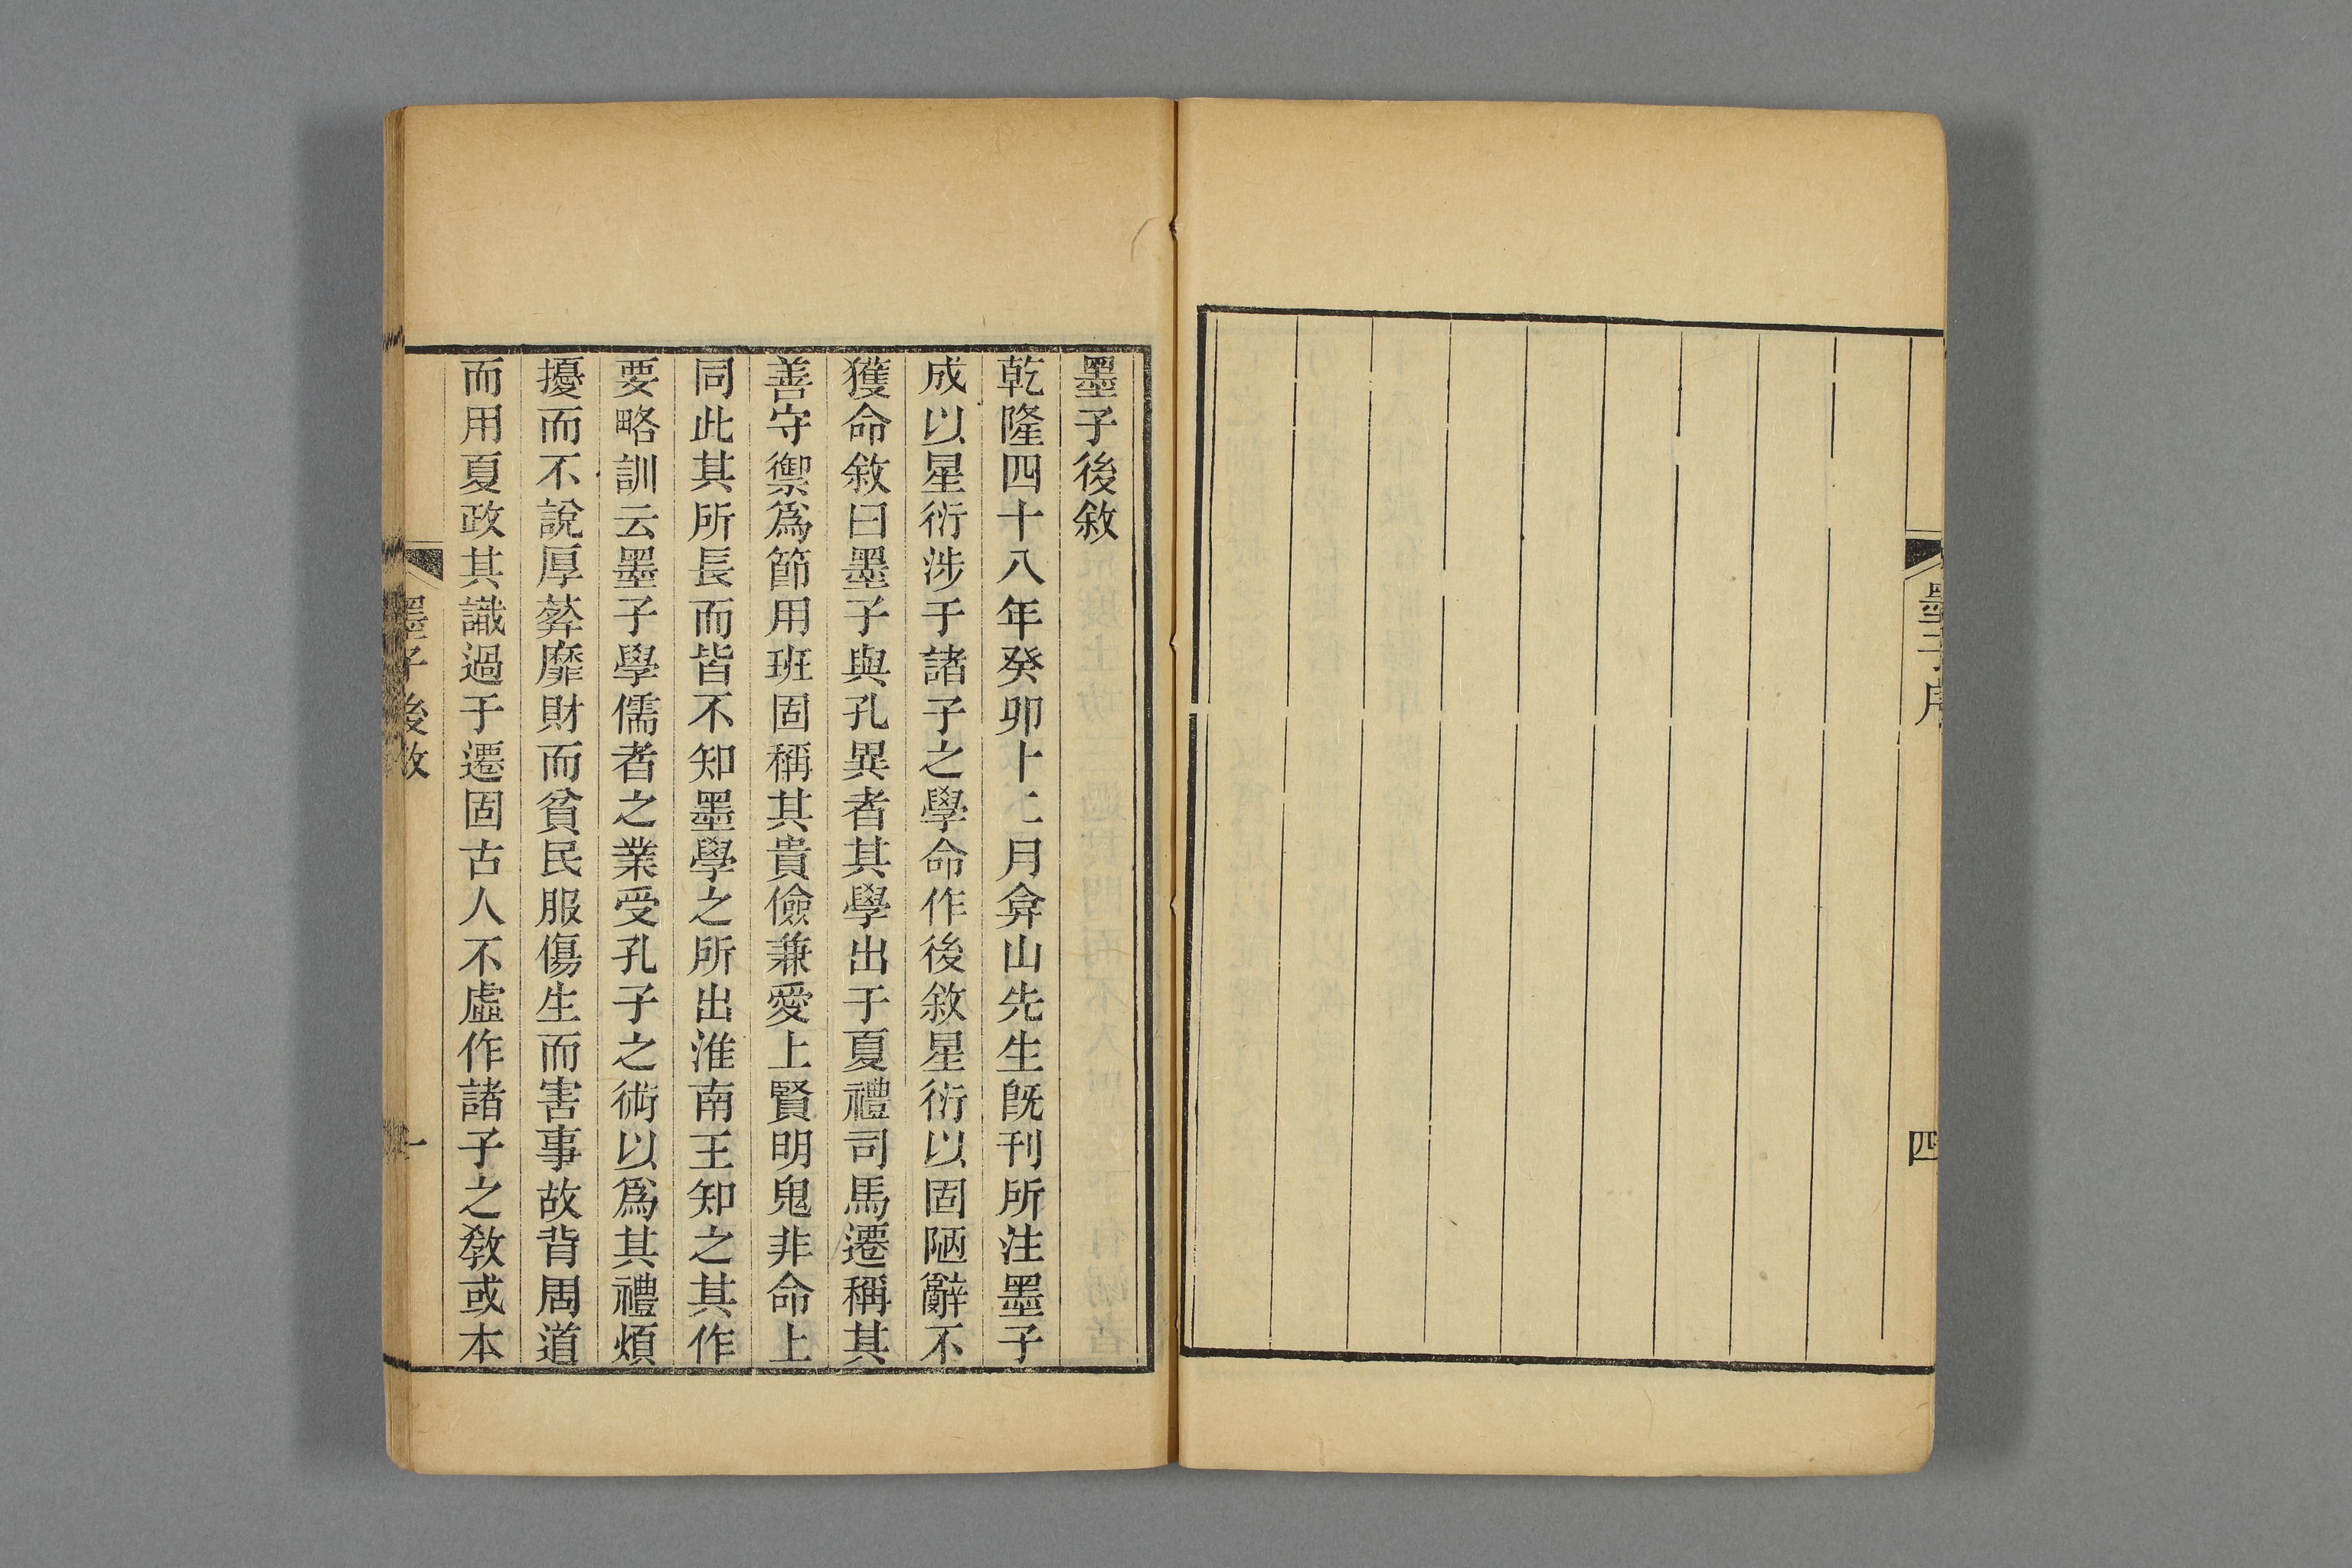 墨子序
四
墨子後敘
乾隆四十八年癸卯十二月弇山先生旣刊所注墨子
成以星衍涉于諸子之學命作後敘星衍以固陋辭不
獲命敘曰墨子與孔異者其學出于夏禮司馬遷稱其
善守禦爲節用班固稱其貴儉兼愛上賢明鬼非命上
同此其所長而皆不知墨學之所出淮南王知之其作
要略訓云墨子學儒者之業受孔子之術以爲其禮煩
擾而不說厚葬靡財而貧民服傷生而害事故背周道
而用夏政其識過于遷固古人不虛作諸子之敎或本
墨子後敘
一